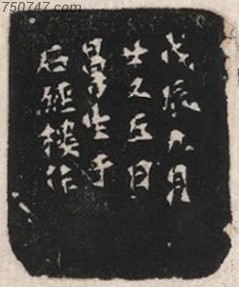 750747.com
戊辰九月
又五日
昌生于
石經樓作